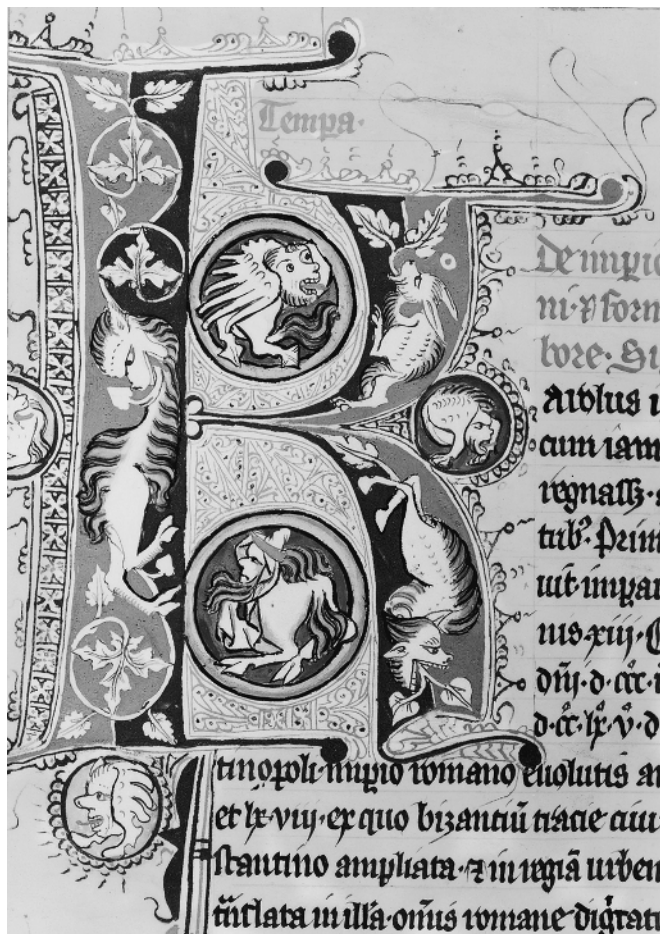 Tempa·
De impio
ni· ⁊ forn
bore· Si
arolus i
cum iam
regnass; ·
tub⁹· Prim
uit impar
nis· xiij·
dñi· d· ccc·
d· cc· lx· v· d
tinopoli· impio romano euolutis an
et lx· viij· ex quo bizantiũ tracie ciui
stantino ampliata· ⁊ in regiã urbem
trãslata in illa· om̃s romane dig̃tat